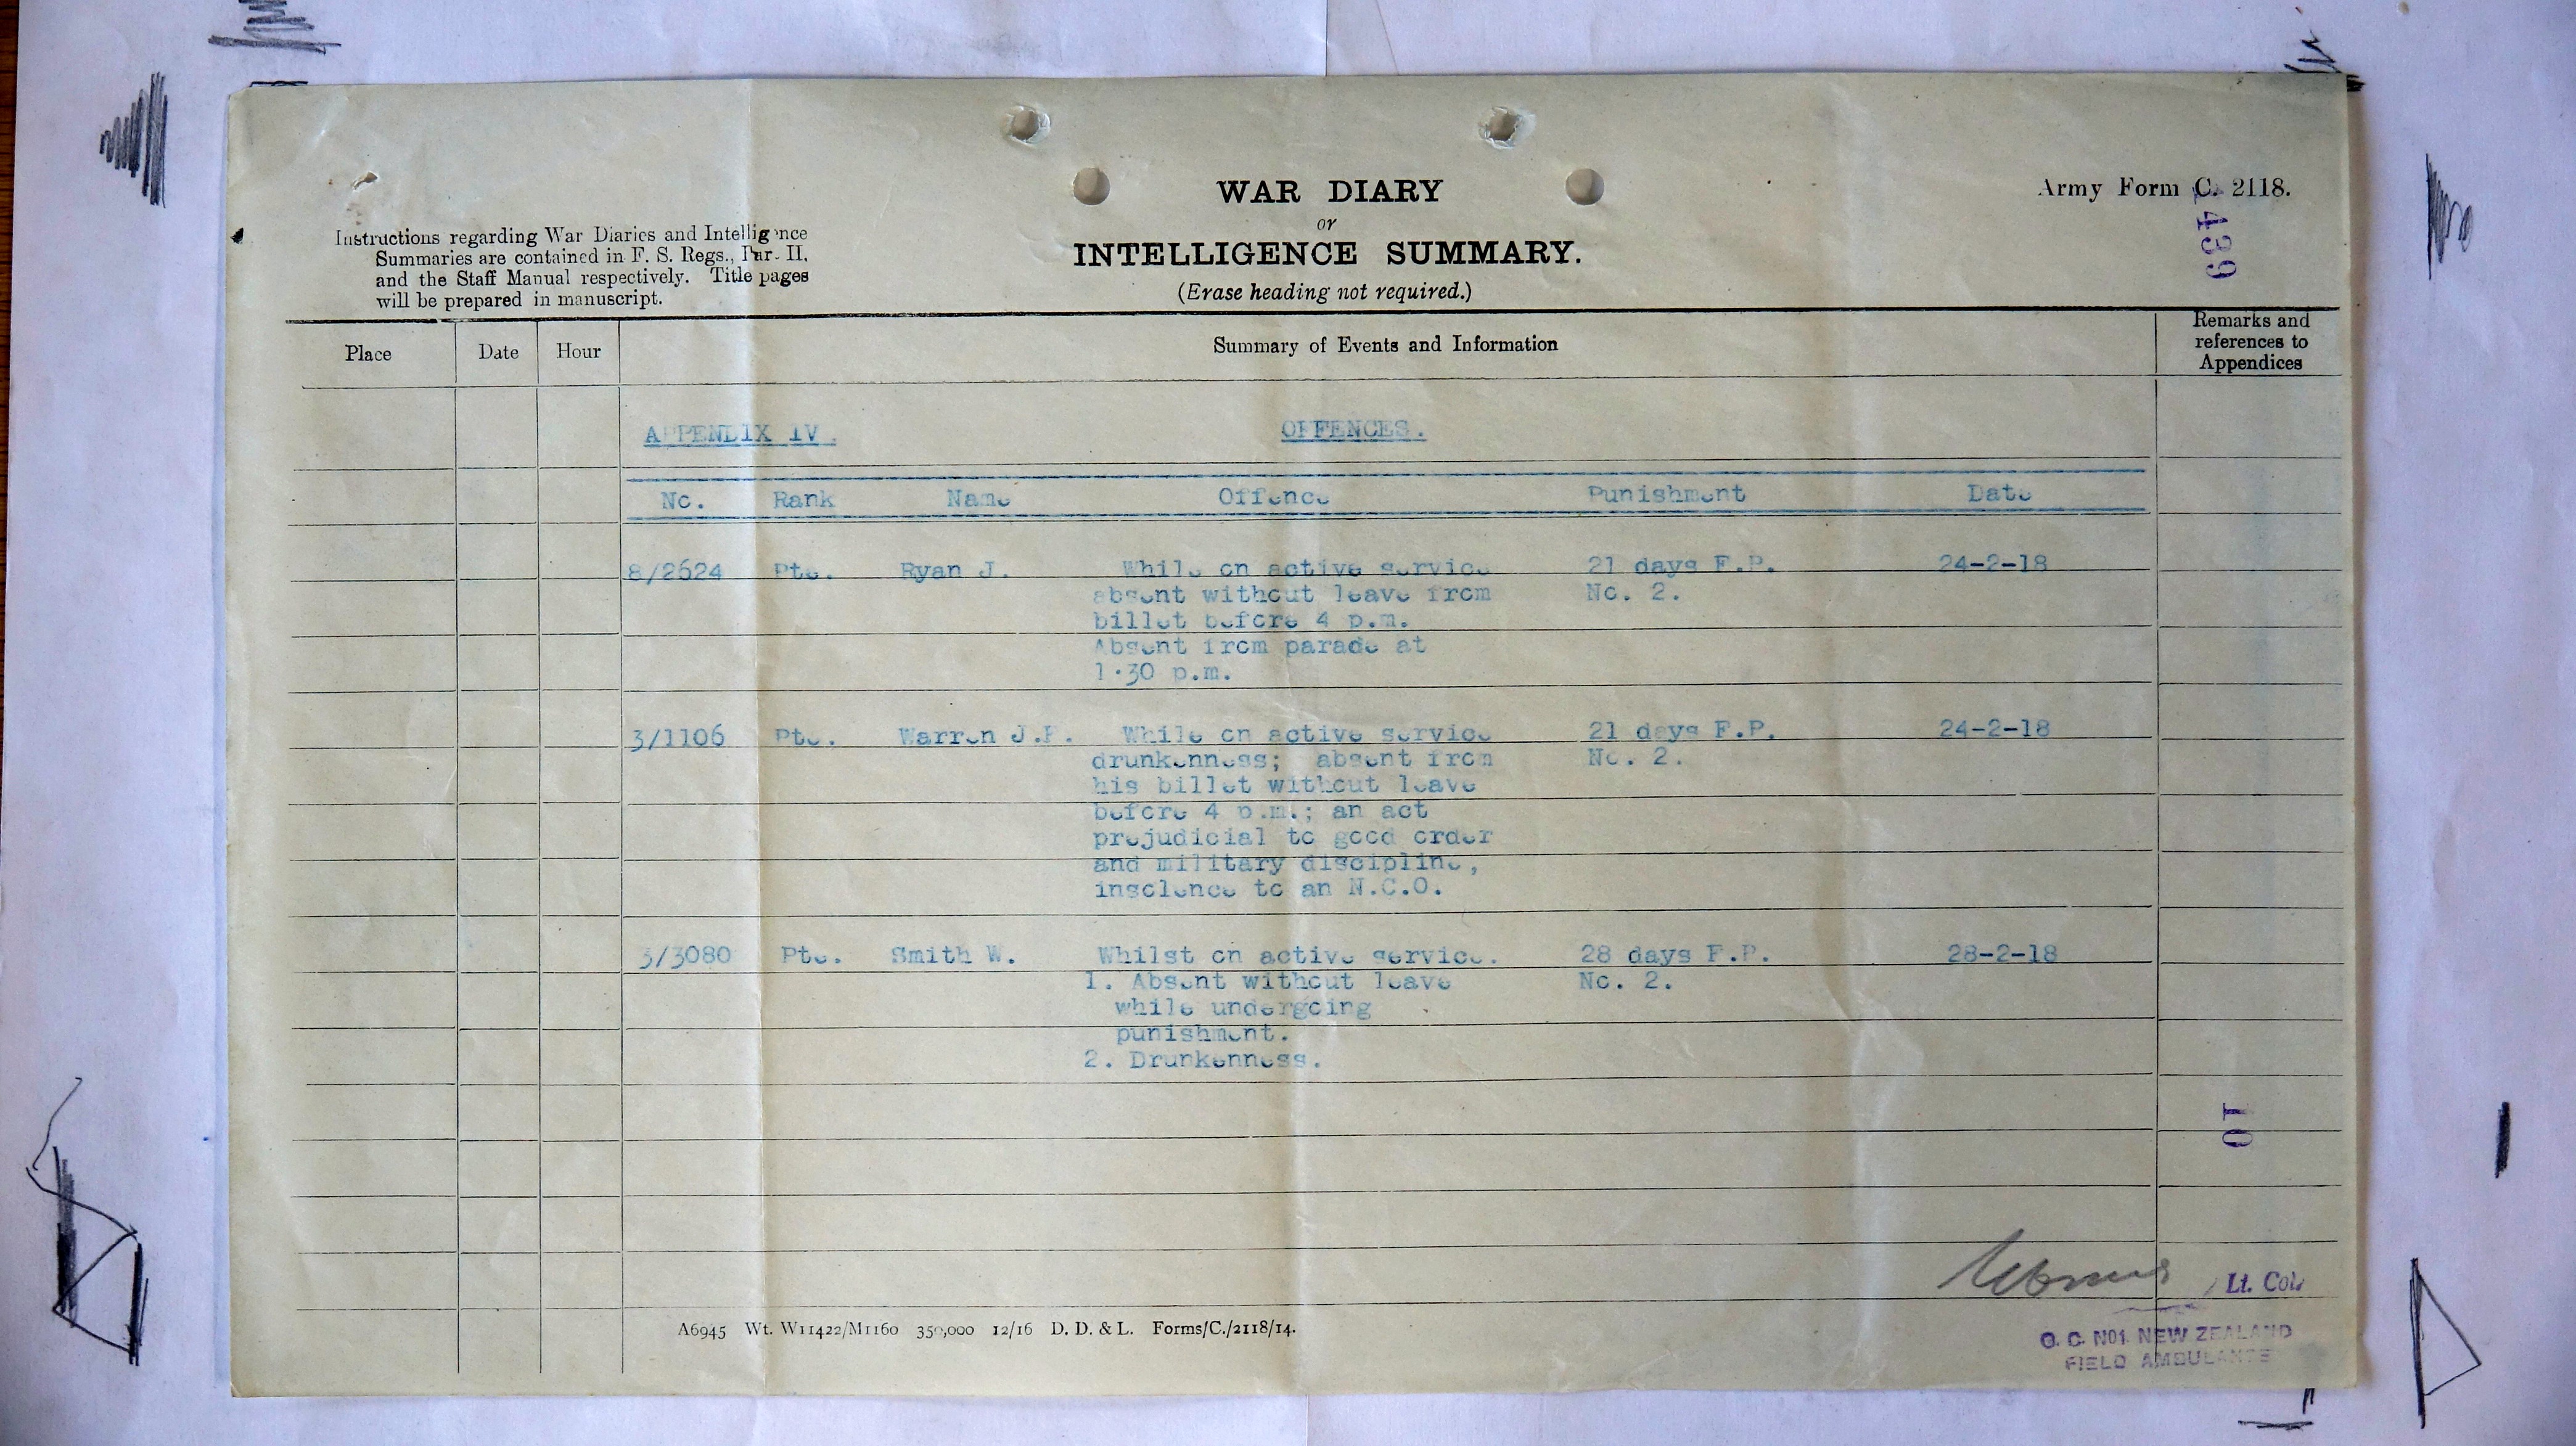 WAR DIARY
or
INTELLIGENCE SUMMARY.
(Erase heading not required.)
Army Form C. 2118.
1439
Instructions regarding War Diaries and Intelligence
Summaries are contained in F. S. Regs., Part II,
and the Staff Manual respectively. Title pages
will be prepared in manuscript.
Place Date Hour Summary of Events and Information Remarks and references to Appendices
APPENDIX IV. OFFENCES.
No. Rank Name Offence Punishment Date
8/2624 Pte. Ryan J. While on active service 21 days F.P. 24-2-18
absent without leave from No. 2.
billet before 4 p.m.
Absent from parade at
1.30 p.m.
3/1106 Pte. Warren While on active service 21 days F.P. 24-2-18
drunkenness; absent from No. 2.
his billet without leave
before 4 p.m.; an act
prejudicial to good order
and military discipline,
insolence to an N.C.O.
3/3080 Pte. Smith W. Whilst on active service. 28 days F.P. 28-2-18
1. Absent without leave No. 2.
while undergoing
punishment.
2. Drunkenness.
10
Lt. Col.
O. C. NO1 NEW ZEALAND
FIELD AMBULANCE
A6945 Wt. W11422/M1160 350,000 12/16 D. D. & L. Forms/C./2118/14.